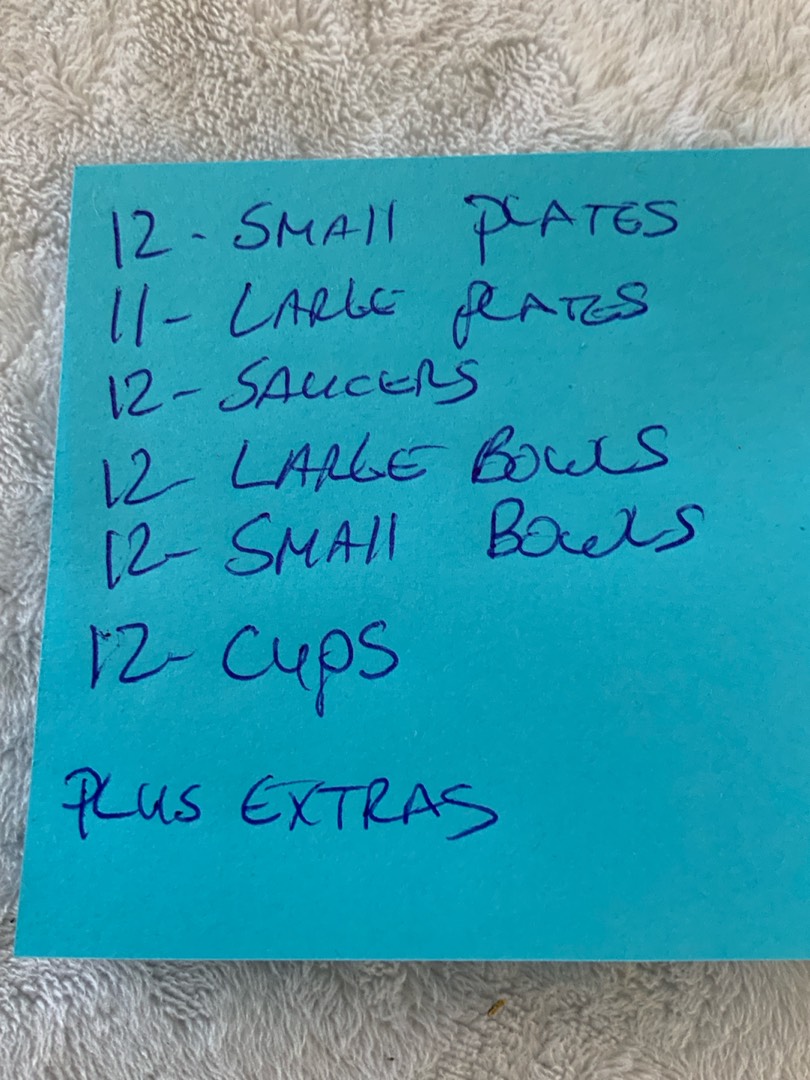 12 - SMALL PLATES
11 - LARGE PLATES
12 - SAUCERS
12 - LARGE BOWLS
12 - SMALL BOWLS
12 - CUPS
PLUS EXTRAS